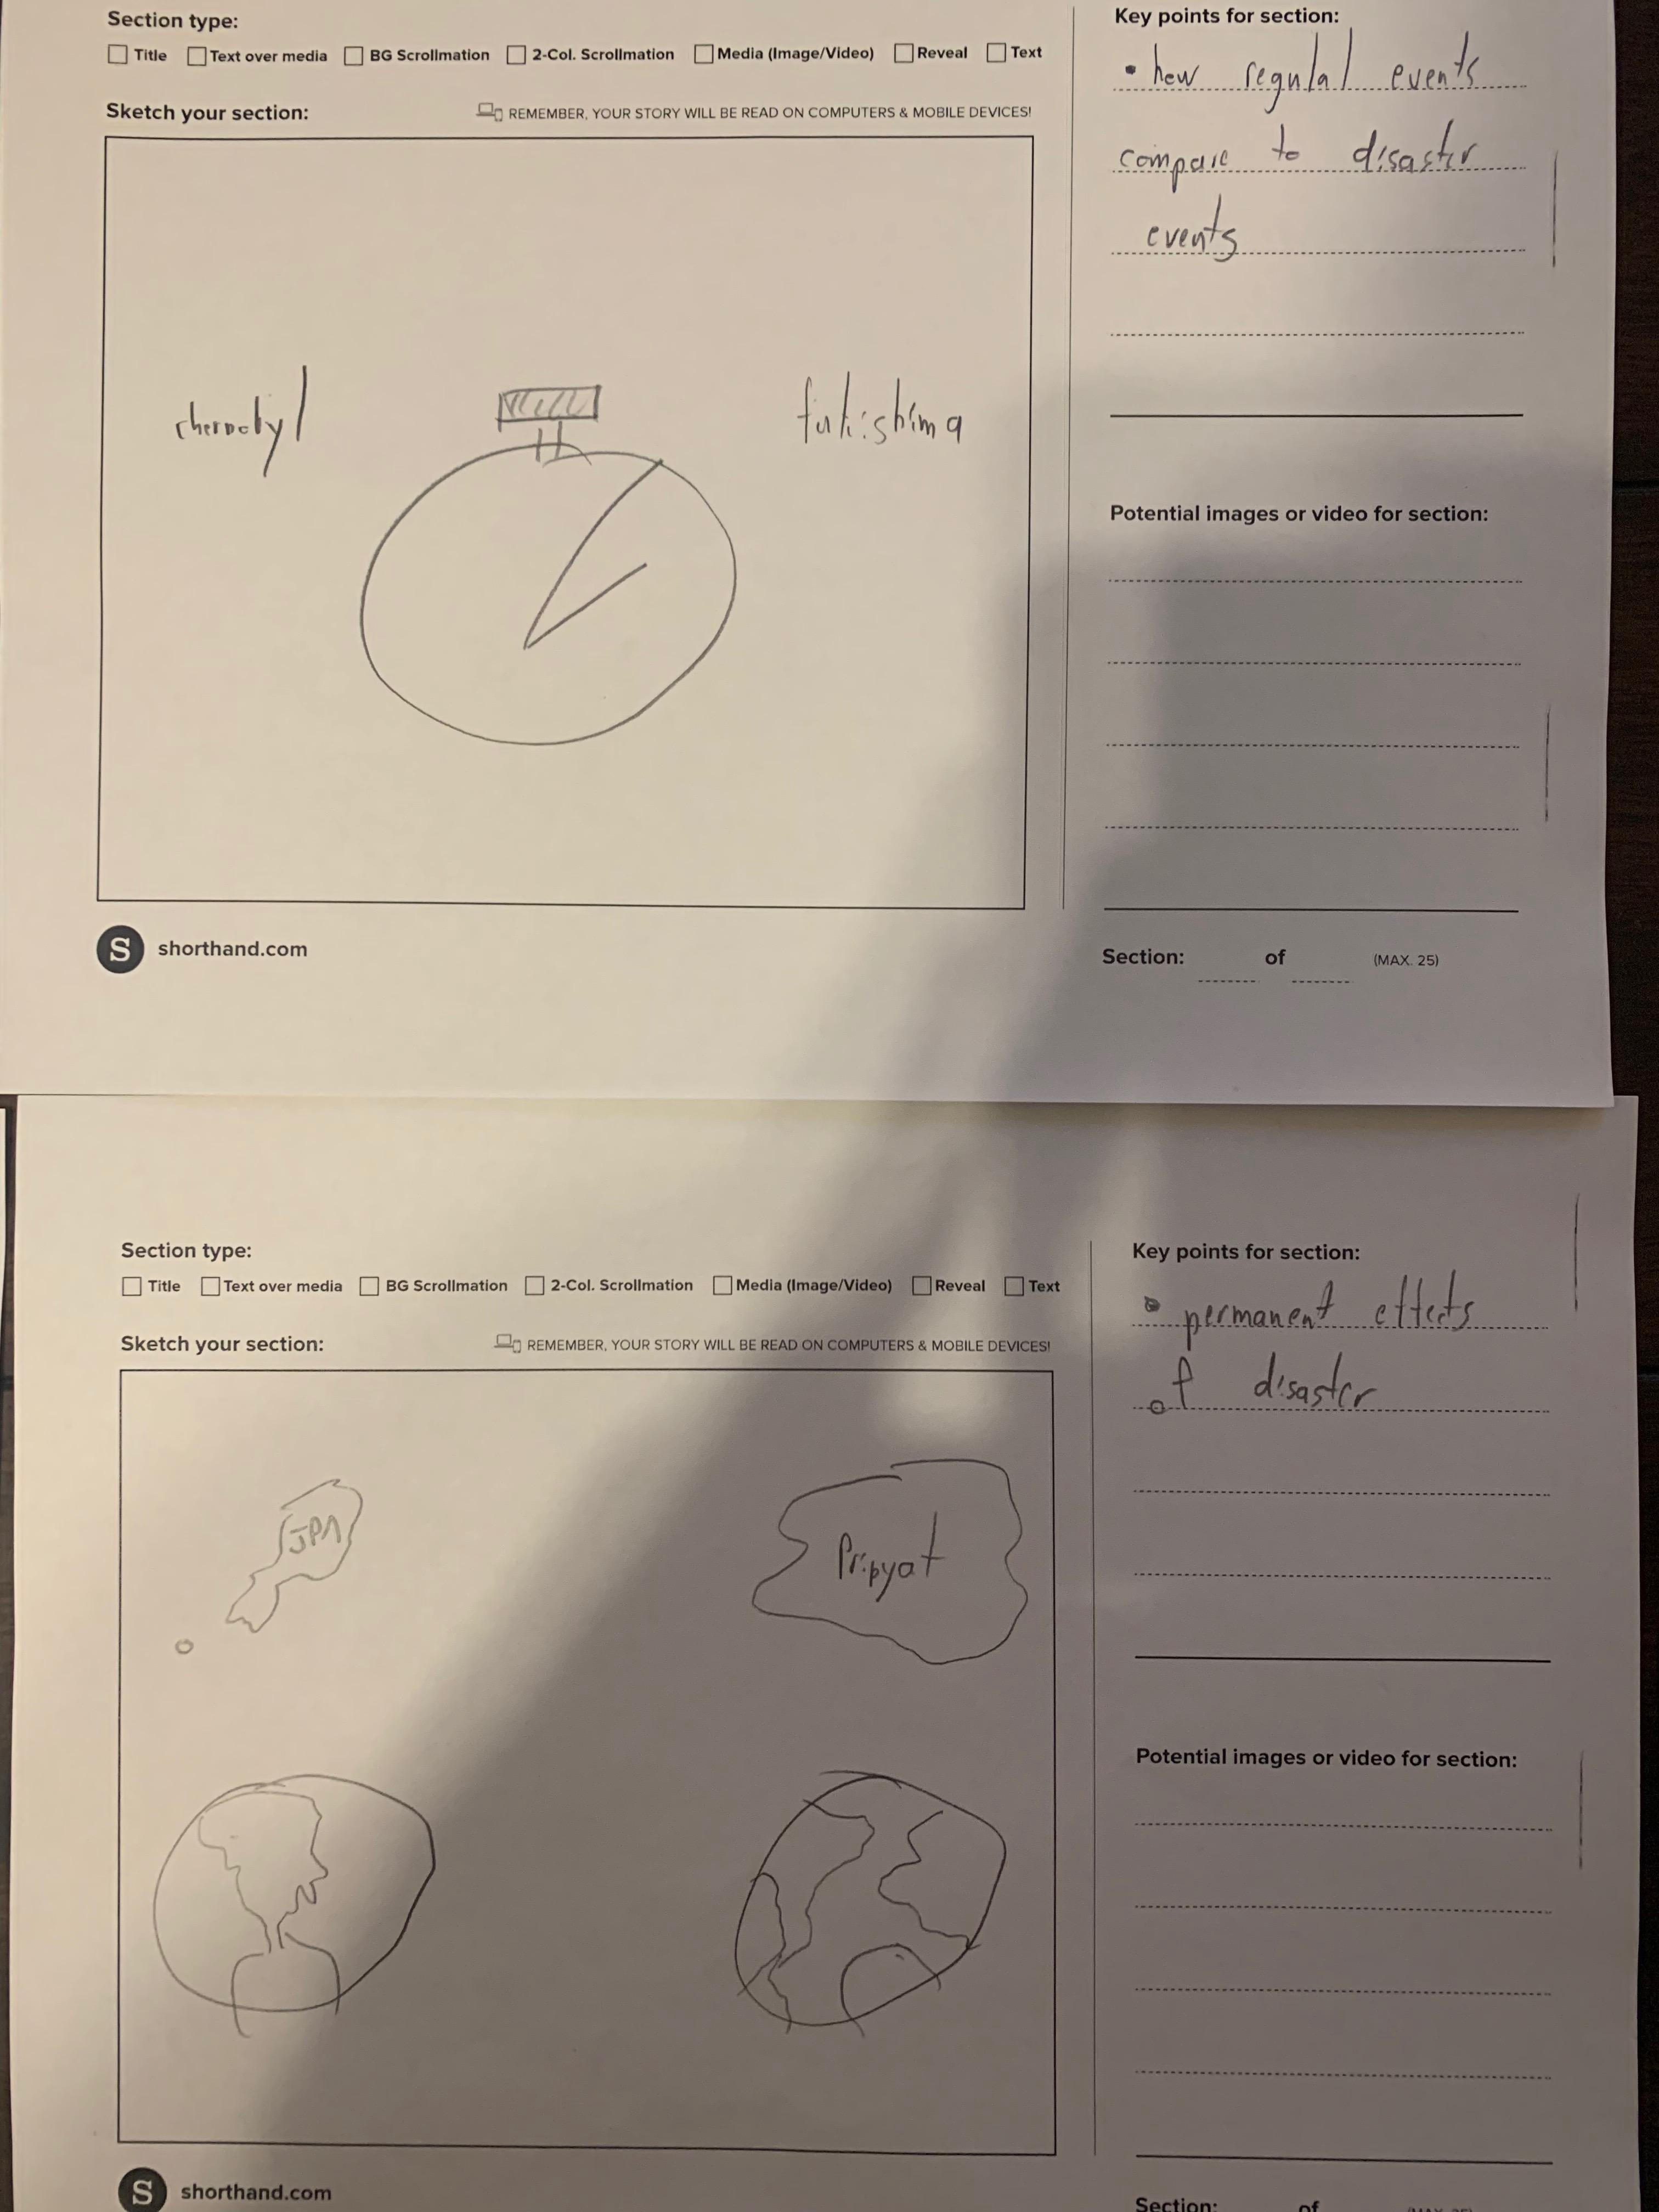 Section type:
Title Text over media BG Scrollmation 2-Col. Scrollmation Media (Image/Video) Reveal Text
Sketch your section: REMEMBER, YOUR STORY WILL BE READ ON COMPUTERS & MOBILE DEVICES!
chernobyl fukishima
S shorthand.com
Key points for section:
• how regulal events
compare to disaster
events
Potential images or video for section:
Section: of (MAX. 25)
Section type:
Title Text over media BG Scrollmation 2-Col. Scrollmation Media (Image/Video) Reveal Text
Sketch your section: REMEMBER, YOUR STORY WILL BE READ ON COMPUTERS & MOBILE DEVICES!
JPN Pripyat
S shorthand.com
Key points for section:
• permanent effects
of disaster
Potential images or video for section:
Section: of